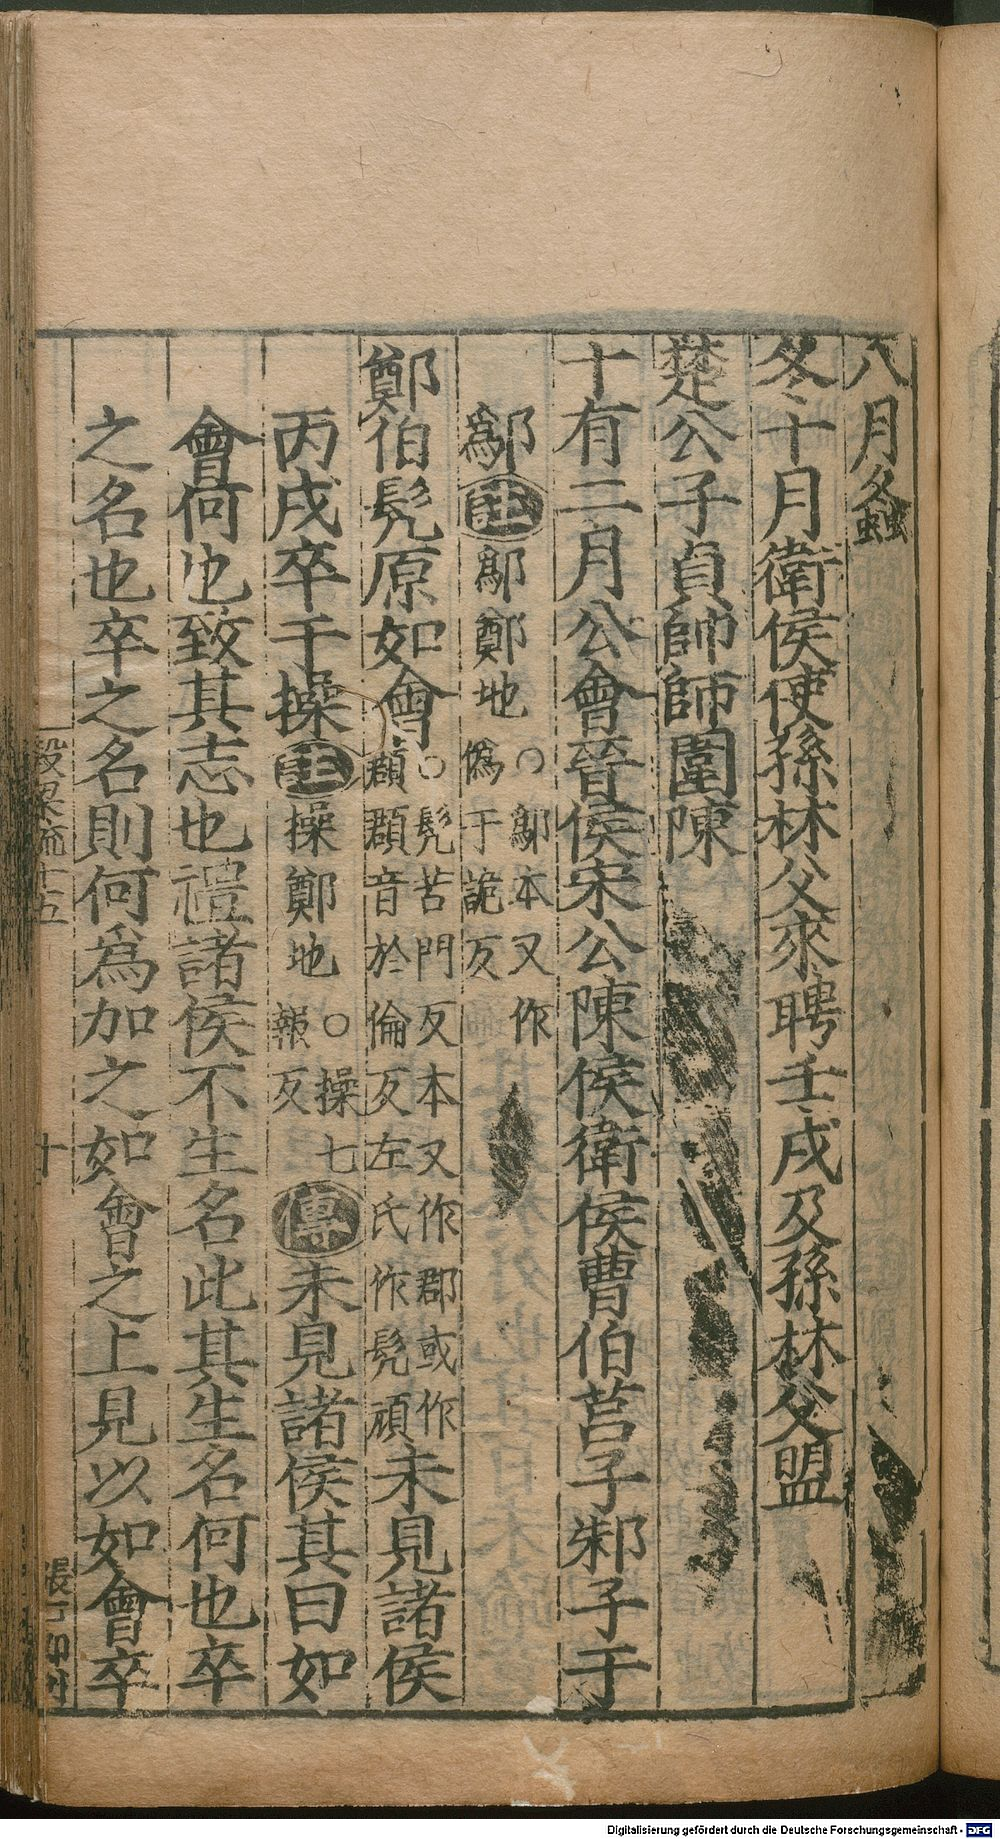 八月螽
冬十月衛侯使孫林父來聘壬戌及孫林父盟
楚公子貞帥師圍陳
十有二月公會晉侯宋公陳侯衛侯曹伯莒子邾子于
鄬註鄬鄭地○鄬本又作
偽于詭反
鄭伯髡原如會○髡苦門反本又作郡或作
頵頵音於倫反左氏作髡頑未見諸侯
丙戌卒于操註操鄭地○操七
報反傳未見諸侯其曰如
會何也致其志也禮諸侯不生名此其生名何也卒
之名也卒之名則何為加之如會之上見以如會卒
十
Digitalisierung gefördert durch die Deutsche Forschungsgemeinschaft - DFG